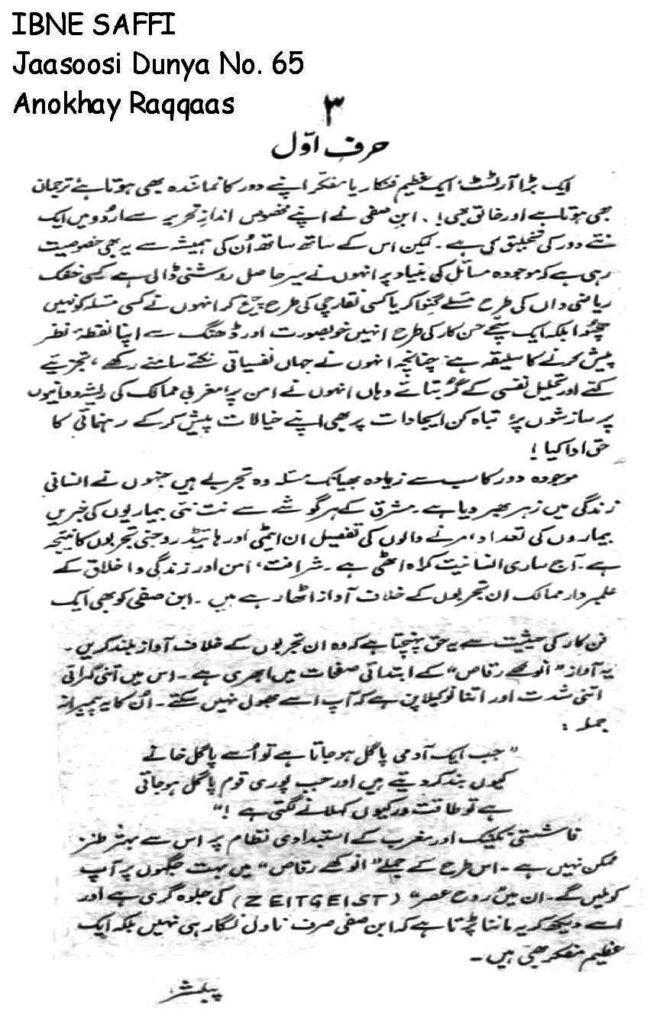 IBNE SAFFI
Jaasoosi Dunya No. 65
Anokhay Raqqaas
۳
حرف اوّل
ایک بڑا آرٹسٹ، ایک عظیم فنکار یا مفکر اپنے دور کا نمائندہ بھی ہوتا ہے ترجمان
بھی ہوتا ہے اور خالق بھی!۔ ابن صفی نے اپنے مخصوص اندازِ تحریر سے اردو میں ایک
نئے دور کی تخلیق کی ہے۔ لیکن اس کے ساتھ ساتھ اُن کی ہمیشہ سے یہ بھی خصوصیت
رہی ہے کہ موجودہ مسائل کی بنیاد پر انہوں نے سیر حاصل روشنی ڈالی ہے کسی خشک
ریاضی داں کی طرح مسئلے گنوا کر یا کسی نقارچی کی طرح چیخ کر انہوں نے کسی مسئلہ کو نہیں
چھیڑا بلکہ ایک سچے فن کار کی طرح انہیں خوبصورت اور ڈھنگ سے اپنا نقطۂ نظر
پیش کرنے کا سلیقہ ہے چنانچہ انہوں نے جہاں نفسیاتی نکتے سامنے رکھے، تجزیئے
کئے اور تحلیل نفسی کے گُر بتائے وہاں انہوں نے امن پر، مغربی ممالک کی ریشہ دوانیوں
پر سازشوں پر، تباہ کن ایجادات پر بھی اپنے خیالات پیش کر کے رہنمائی کا
حق ادا کیا!
موجودہ دور کا سب سے زیادہ بھیانک مسئلہ وہ تجربے ہیں جنہوں نے انسانی
زندگی میں زہر بھر دیا ہے۔ مشرق کے ہر گوشے سے نت نئی بیماریوں کی خبریں
بیماروں کی تعداد، مرنے والوں کی تفصیل ان ایٹمی اور ہائیڈروجنی تجربوں کا نتیجہ
ہے۔ آج ساری انسانیت کراہ اٹھی ہے۔ شرافت، امن اور زندگی و اخلاق کے
علمبردار ممالک ان تجربوں کے خلاف آواز اٹھا رہے ہیں۔ ابن صفی کو بھی ایک
فن کار کی حیثیت سے یہ حق پہنچتا ہے کہ وہ ان تجربوں کے خلاف آواز بلند کریں۔
یہ آواز ”انوکھے رقاص“ کے ابتدائی صفحات میں ابھری ہے۔ اس میں اتنی گہرائی
اتنی شدت اور اتنا نوکیلا پن ہے کہ آپ اسے بھول نہیں سکتے۔ اُن کا یہ پیمبرانہ
جملہ:
”جب ایک آدمی پاگل ہو جاتا ہے تو اُسے پاگل خانے
کیوں بند کر دیتے ہیں اور جب پوری قوم پاگل ہو جاتی
ہے تو طاقت ور کیوں کہلانے لگتی ہے!“
فاشستی تکنیک اور مغرب کے استبدادی نظام پر اس سے بہتر طنز
ممکن نہیں ہے۔ اس طرح کے جملے ”انوکھے رقاص“ میں بہت جگہوں پر آپ
کو ملیں گے۔ ان میں روح عصر“ (ZEITGEIST) کی جلوہ گری ہے اور
اسے دیکھ کر یہ ماننا پڑتا ہے کہ ابن صفی صرف ناول نگار ہی نہیں بلکہ ایک
عظیم مفکر بھی ہیں۔
پبلشر